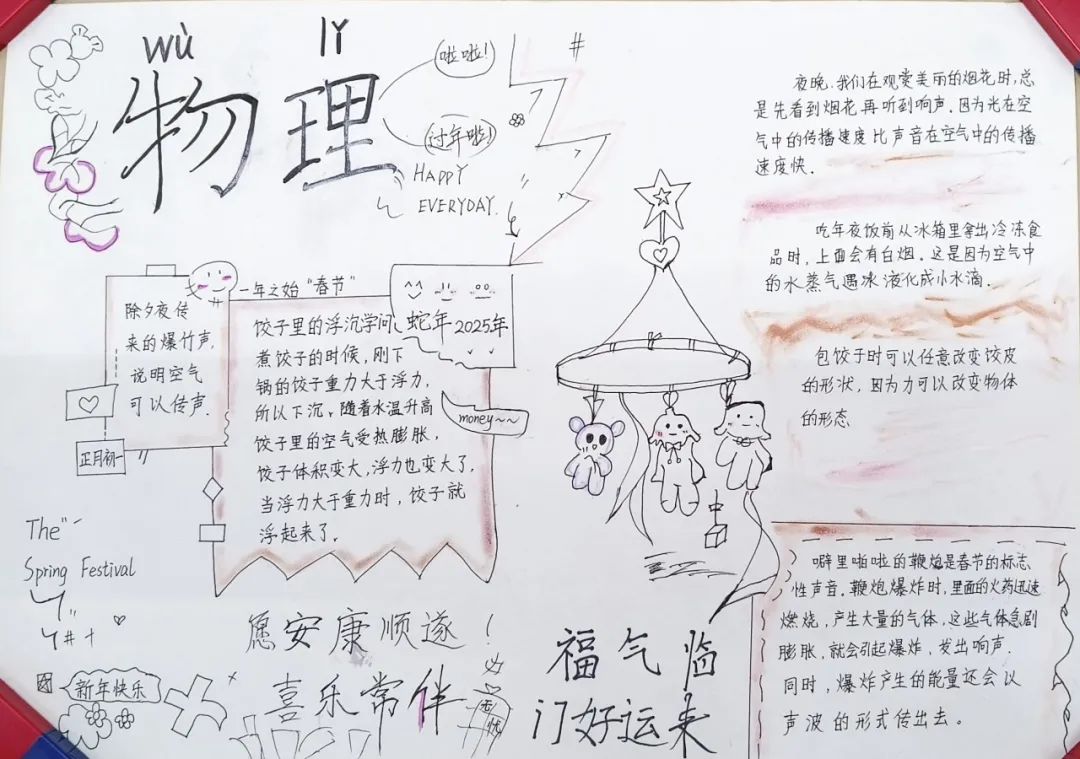 wù lǐ
物理
啦啦!
过年啦!
HAPPY
EVERYDAY.
#
夜晚,我们在观赏美丽的烟花时,总
是先看到烟花,再听到响声.因为光在空
气中的传播速度比声音在空气中的传播
速度快.
吃年夜饭前从冰箱里拿出冷冻食
品时,上面会有白烟.这是因为空气中
的水蒸气遇冰液化成小水滴.
包饺子时可以任意改变饺皮
的形状,因为力可以改变物体
的形态
噼里啪啦的鞭炮是春节的标志
性声音.鞭炮爆炸时,里面的火药迅速
燃烧,产生大量的气体,这些气体急剧
膨胀,就会引起爆炸,发出响声.
同时,爆炸产生的能量还会以
声波的形式传出去。
除夕夜传
来的爆竹声,
说明空气
可以传声.
正月初一
一年之始“春节”
饺子里的浮沉学问
煮饺子的时候,刚下
锅的饺子重力大于浮力,
所以下沉,随着水温升高
饺子里的空气受热膨胀,
饺子体积变大,浮力也变大了,
当浮力大于重力时,饺子就
浮起来了.
蛇年2025年
money~~
中
The
Spring Festival
新年快乐
愿安康顺遂!
喜乐常伴
福气临
门好运来